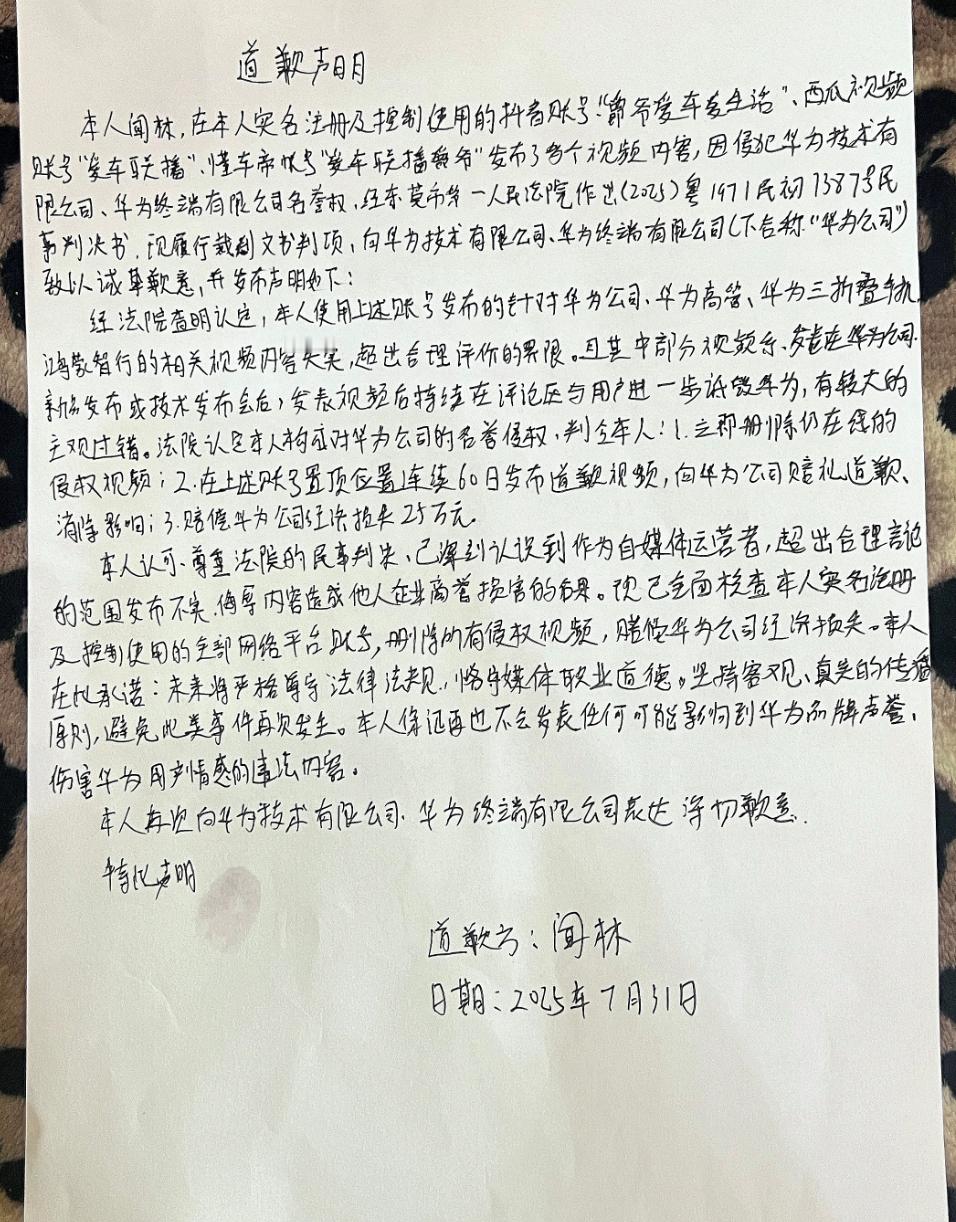 道歉声明
本人闻林，在本人实名注册及控制使用的抖音账号“爵爷爱车爱生活”、西瓜视频
账号“爱车联播”、懂车帝帐号“爱车联播爵爷”发布了多个视频内容，因侵犯华为技术有
限公司、华为终端有限公司名誉权，经东莞市第一人民法院作出(2025)粤1971民初13873号民
事判决书，现履行裁判文书判项，向华为技术有限公司、华为终端有限公司(下合称“华为公司”)
致以诚挚歉意，并发布声明如下：
经法院查明认定，本人使用上述账号发布的针对华为公司、华为高管、华为三折叠手机、
鸿蒙智行的相关视频内容失实，超出合理评价的界限。且其中部分视频系发表在华为公司
新品发布或技术发布会后，发表视频后持续在评论区与用户进一步诋毁华为，有较大的
主观过错。法院认定本人构成对华为公司的名誉侵权，判令本人：1.立即删除仍在线的
侵权视频；2.在上述账号置顶位置连续60日发布道歉视频，向华为公司赔礼道歉、
消除影响；3.赔偿华为公司经济损失25万元。
本人认可、尊重法院的民事判决，已深刻认识到作为自媒体运营者，超出合理言论
的范围发布不实、侮辱内容造成他人企业商誉损害的后果。现已全面核查本人实名注册
及控制使用的全部网络平台账号，删除所有侵权视频，赔偿华为公司经济损失。本人
在此承诺：未来将严格遵守法律法规，恪守媒体职业道德。坚持客观、真实的传播
原则，避免此类事件再次发生。本人保证再也不会发表任何可能影响到华为品牌声誉、
伤害华为用户情感的违法内容。
本人再次向华为技术有限公司、华为终端有限公司表达深切歉意.
特此声明
道歉方：闻林
日期：2025年7月31日